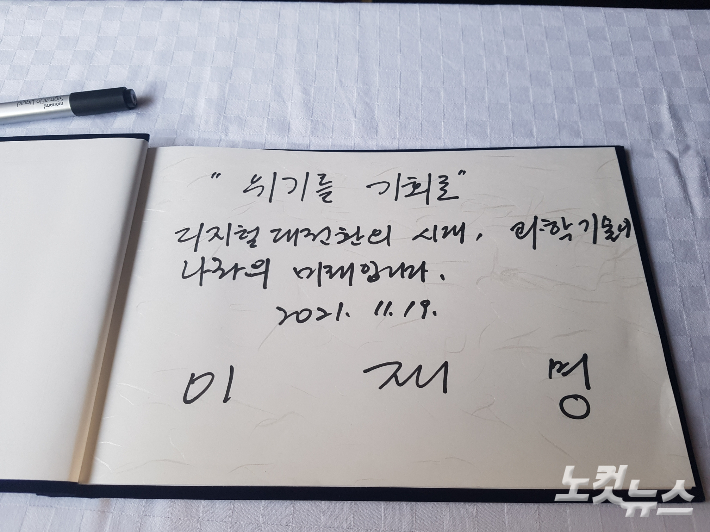 "위기를 기회로"
디지털 대전환의 시대, 과학기술이
나라의 미래입니다.
2021. 11. 19.
이 재 명
노컷뉴스